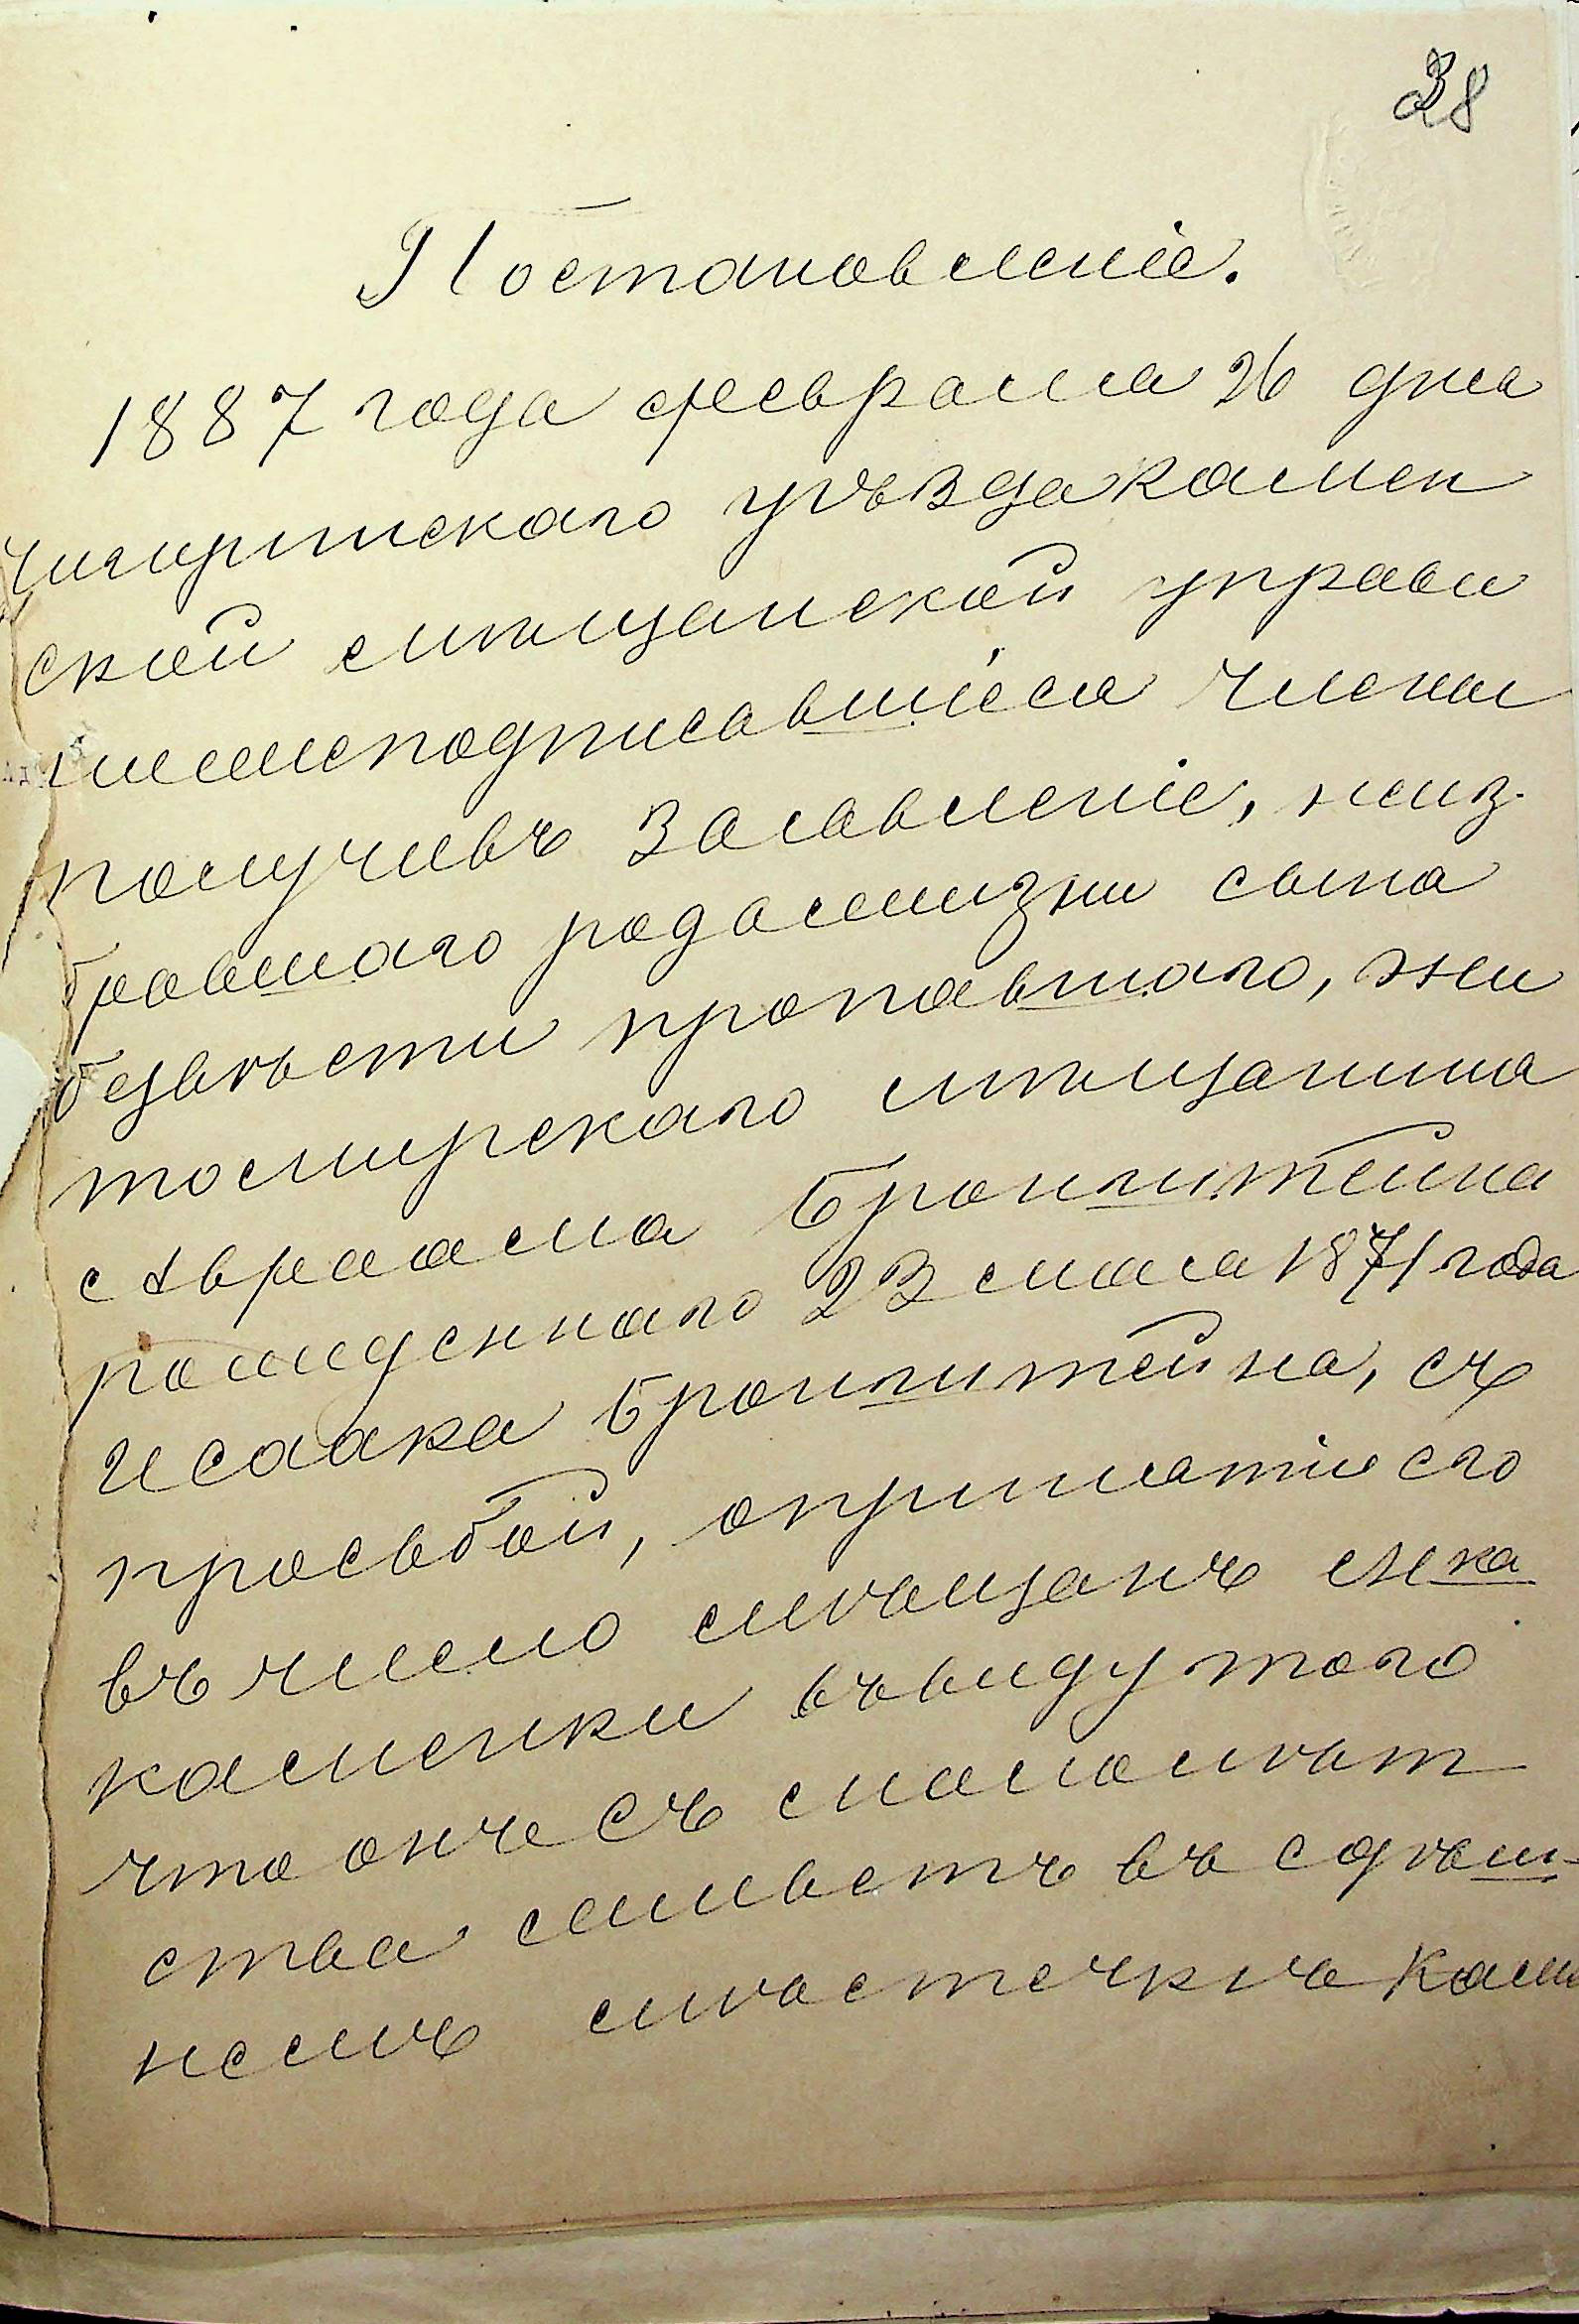 28
Постановленіе.
1887 года февраля 26 дня
Чигиринскаго уѣзда камен
ской мѣщанской управи
нижеподписавшіеся члены
получивъ заявленіе, неиз-
бравшаго родажизни сына
безвѣсти пропавшаго, жи
томирскаго мѣщанина
Авраама Бронштейна
рожденнаго 23 мая 1871 года
Исаака Бронштейна, съ
просьбой, опринятіи его
въ число мѣщанъ м-ка
каменки ввиду того
что онъ съ малолѣт
ства живетъ въ здѣш-
немъ мѣстечкѣ Каме